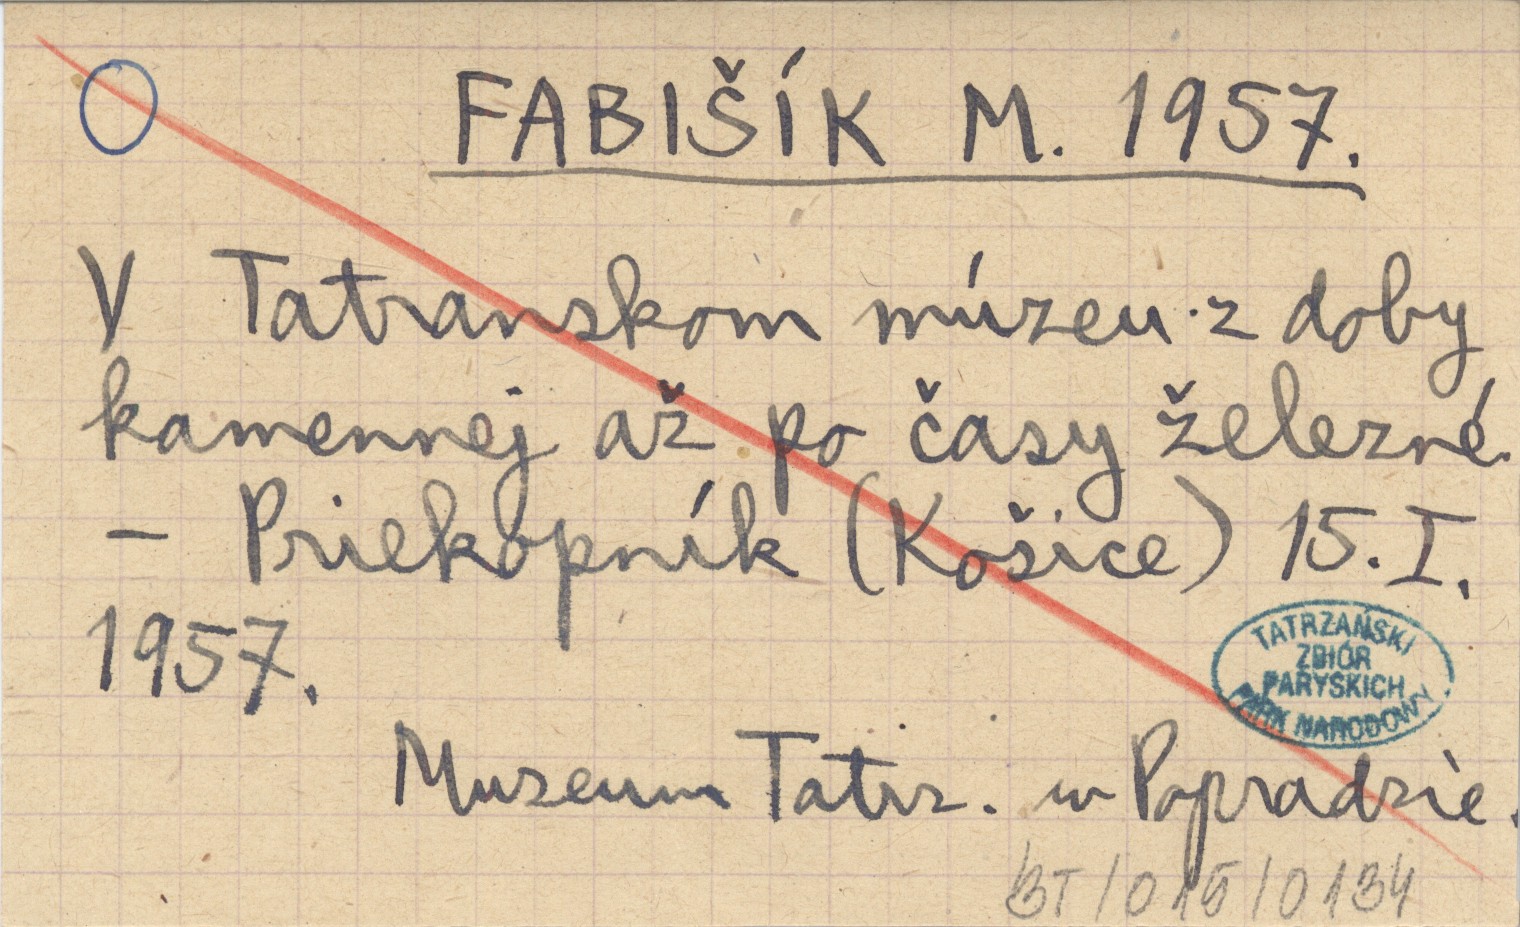 FABIŠÍK M. 1957.
V Tatranskom múzeu z doby
kamennej až po časy železné.
- Priekopník (Košice) 15. I.
1957.
TATRZAŃSKI
ZBIÓR
PARYSKICH
PARK NARODOWY
Muzeum Tatrz. w Popradzie.
BT/015/0134